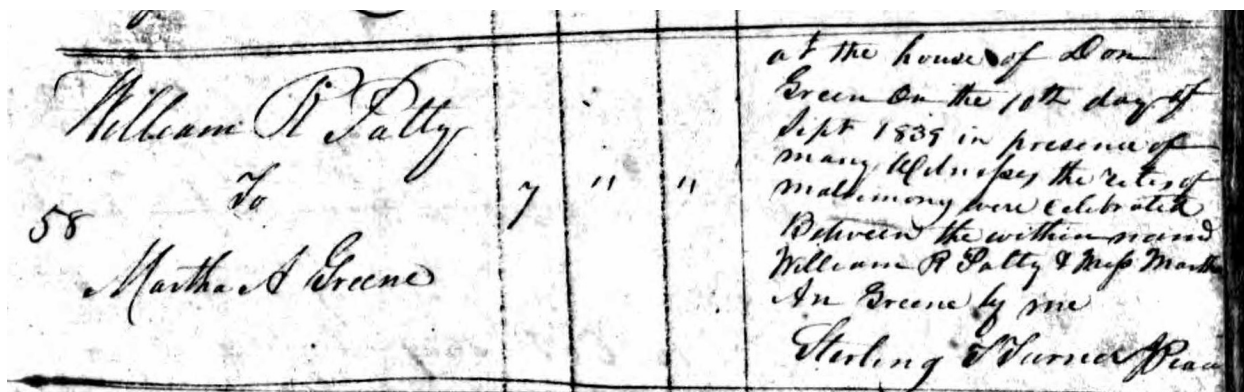 William R Patty
To
58 7 " "
Martha A Greene
at the house of Don
Green On the 10th day of
Sept 1839 in presence of
many Witnesses the rites of
matrimony were celebrated
Between the within named
William R Patty & Miss Martha
An Greene by me
Sterling T Turner J Peace